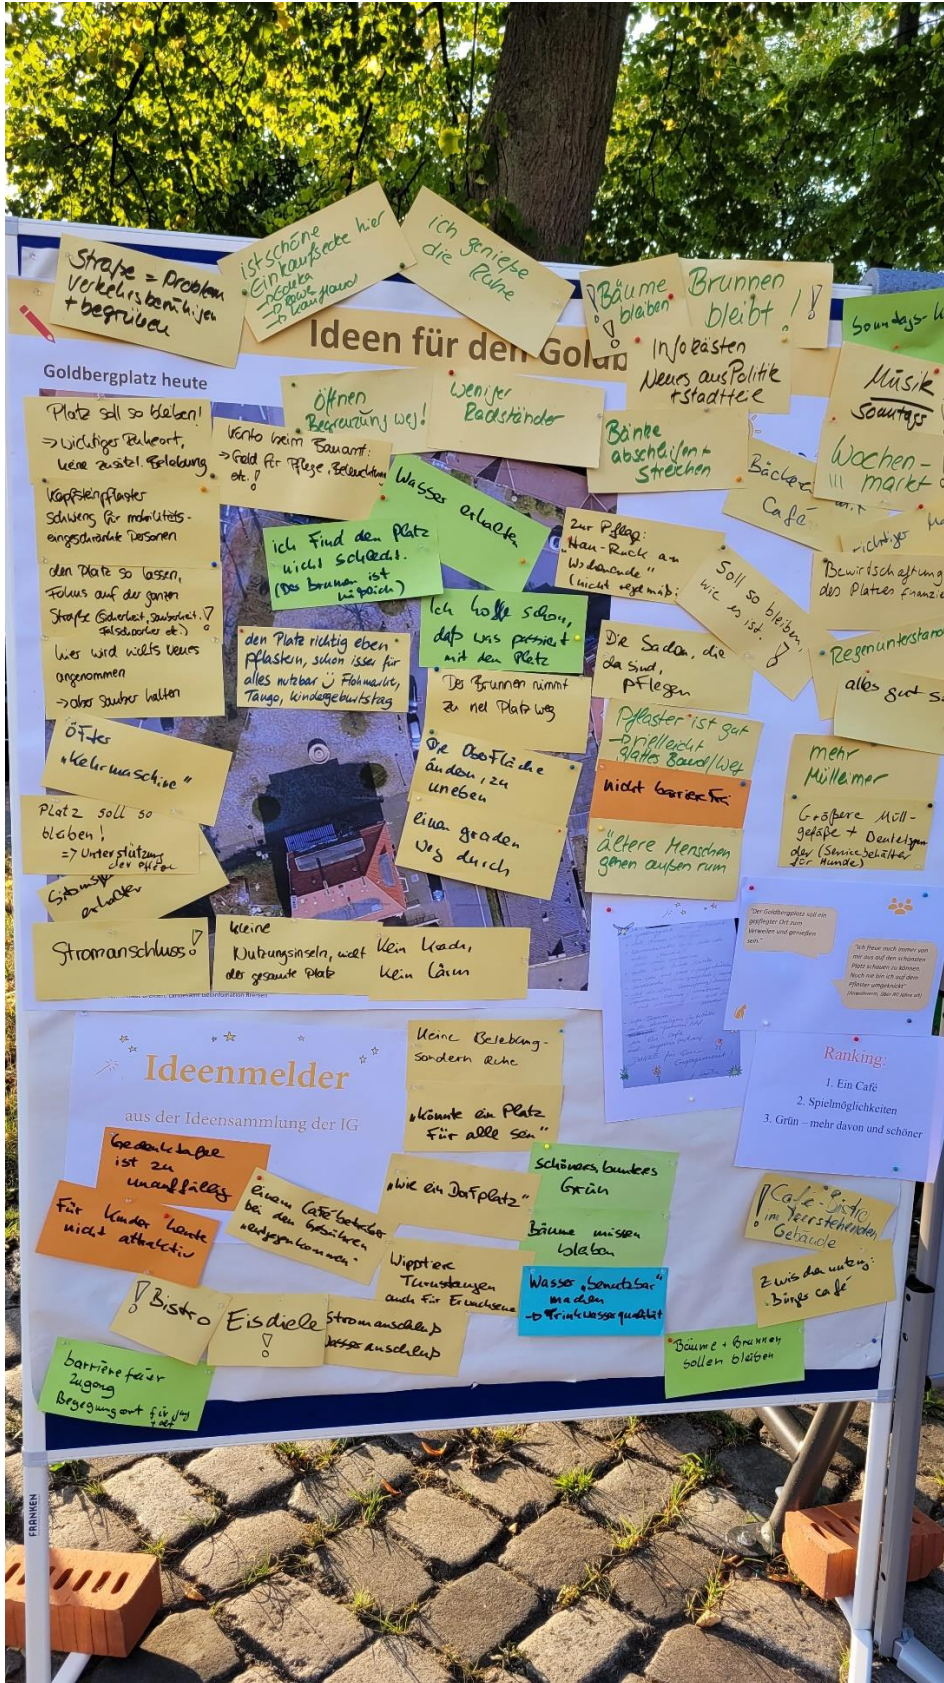 Straße = Problem
verkehrsberuhigen
+ begrünen
ist schöne
Einkaufsecke hier
→ Edeka
→ Rewe
→ Kaufland
ich genieße
die Ruhe
! Bäume !
bleiben
Brunnen
bleibt!!
Infokästen
Neues aus Politik
+ Stadtteile
Sonntags-
Musik
Sonntags
Wochen-
!!! markt
Ideen für den Goldb
Goldbergplatz heute
Öffnen
Begrenzung weg!
Weniger
Radständer
Bänke
abschleifen +
Streichen
Bäckerei
Café
Platz soll so bleiben!
⇒ wichtiger Ruheort,
keine zusätzl. Belebung
Konto beim Bauamt:
→ Geld für Pflege, Beleuchtung
etc.!
Wasser erhalten
Kopfsteinpflaster
schwierig für mobilitäts-
eingeschränkte Personen
ich find den Platz
nicht schlecht.
(Der Brunnen ist
zur Pflege:
"Hau-Ruck am
Wochenende"
(nicht regelmäßig)
Soll so bleiben,
wie es ist. !
richtiger
Bewirtschaftung
des Platzes finanzie
den Platz so lassen,
Fokus auf der ganzen
Straße (Sicherheit, Sauberkeit, !
Falschparker etc.)
Ich hoffe schon,
daß was passiert
mit dem Platz
hier wird nichts neues
angenommen
→ aber sauber halten
den Platz richtig eben
pflastern, schon isser für
alles nutzbar ü Flohmarkt,
Tango, Kindergeburtstag
Die Sachen, die
da sind,
pflegen
Regenunterstand
alles gut s
Der Brunnen nimmt
zu viel Platz weg
Öfter
"Kehrmaschine"
Die Oberfläche
ändern, zu
uneben
Pflaster ist gut
→ vielleicht
glattes Band/Weg
mehr
Mülleimer
nicht barrierefrei
Platz soll so
bleiben!
⇒ Unterstützung
der Pflege
einen graden
Weg durch
ältere Menschen
gehen außen rum
Größere Müll-
gefäße + Beutelspen
der (Servicebehälter
für Hunde)
erhalten
Stromanschluss!
kleine
Nutzungsinseln, nicht
der gesamte Platz
Kein Krach,
Kein Lärm
"Der Goldbergplatz soll ein
gepflegter Ort zum
Verweilen und genießen
sein."
"Ich freue mich immer von
mir aus auf den schönsten
Platz schauen zu können.
Noch nie bin ich auf dem
Pflaster umgeknickt"
Ideenmelder
aus der Ideensammlung der IG
Keine Belebung-
sondern Ruhe
"Könnte ein Platz
für alle sein"
Ranking:
1. Ein Café
2. Spielmöglichkeiten
3. Grün – mehr davon und schöner
Gedenktafel
ist zu
unauffällig
Für Kinder heute
nicht attraktiv
einem Cafébetreiber
bei den Gebühren
"entgegenkommen"
"wie ein Dorfplatz"
Schöneres, bunteres
Grün
Bäume müssen
bleiben
! Café-Bistro
im leerstehenden
Gebäude
Wipptiere
Turnstangen
auch für Erwachsene
Wasser "benutzbar"
machen
→ Trinkwasserqualität
Zwischennutzung:
Bürgercafé
! Bistro
Eisdiele
!
Stromanschluß
Wasseranschluß
Bäume + Brunnen
sollen bleiben
barrierefreier
Zugang
Begegnungsort für jung
+ alt
FRANKEN